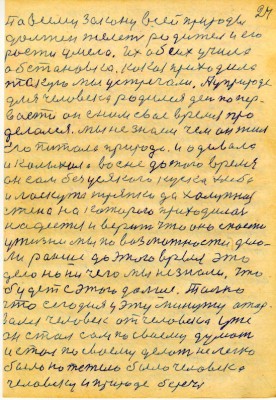 27
по всему закону всей природы
должен телет родится и его
рости умело. Их обсих учила
обстановка, какая приходила
такую мы встречали. А в природе
для человека родился ден по пер
вости он с ним свае время про
делался. мы не знаем чем он жил
его питала природа. и одевало
и колыхало во сне до того время
он сам без усякого куска хлеба
и лоскута тряпки да холодная
стена на которого приходилась
надеется и верить что оно спасет
у жизни мы по возможности дела
ли раньше до этого время это
дело но ни чего мы не знали, что
будет с этого дальше. Только
что сегодня у эту минуту отор
вался человек от человека уже
он стал сам по своему думат
и стал по своему делат нелегко
было по тяжело было человека
человеку и природе беречя